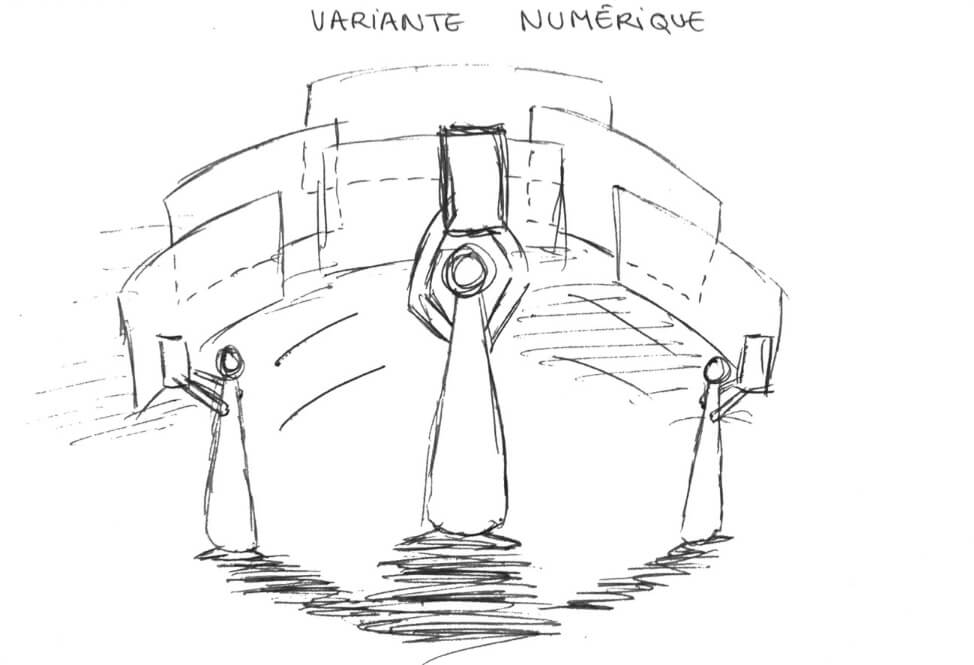 VARIANTE NUMÉRIQUE